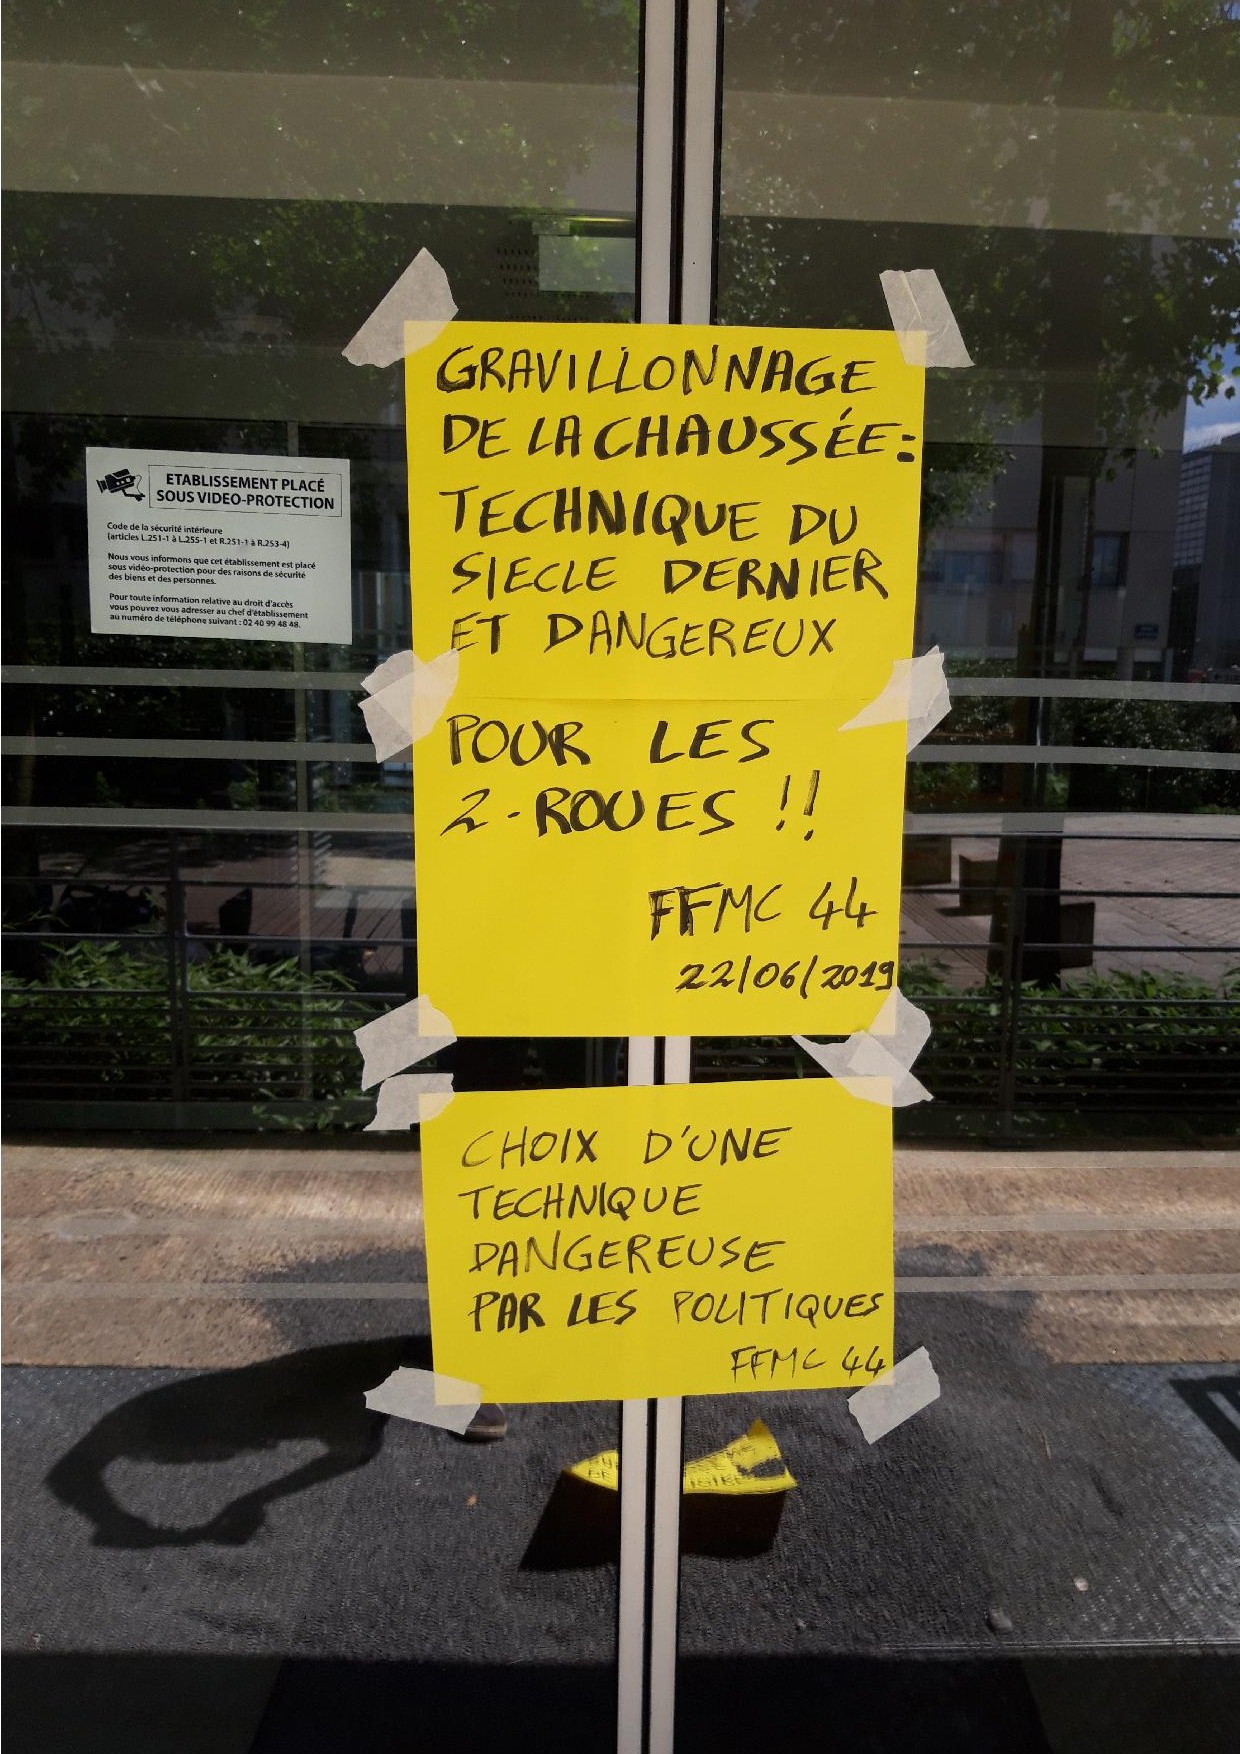 GRAVILLONNAGE
DE LA CHAUSSÉE:
TECHNIQUE DU
SIECLE DERNIER
ET DANGEREUX
POUR LES
2-ROUES !!
FFMC 44
22/06/2019
CHOIX D'UNE
TECHNIQUE
DANGEREUSE
PAR LES POLITIQUES
FFMC 44
ETABLISSEMENT PLACÉ
SOUS VIDEO-PROTECTION
Code de la sécurité intérieure
(articles L.251-1 à L.255-1 et R.251-1 à R.253-4)
Nous vous informons que cet établissement est placé
sous vidéo-protection pour des raisons de sécurité
des biens et des personnes.
Pour toute information relative au droit d'accès
vous pouvez vous adresser au chef d'établissement
au numéro de téléphone suivant : 02 40 99 48 48.